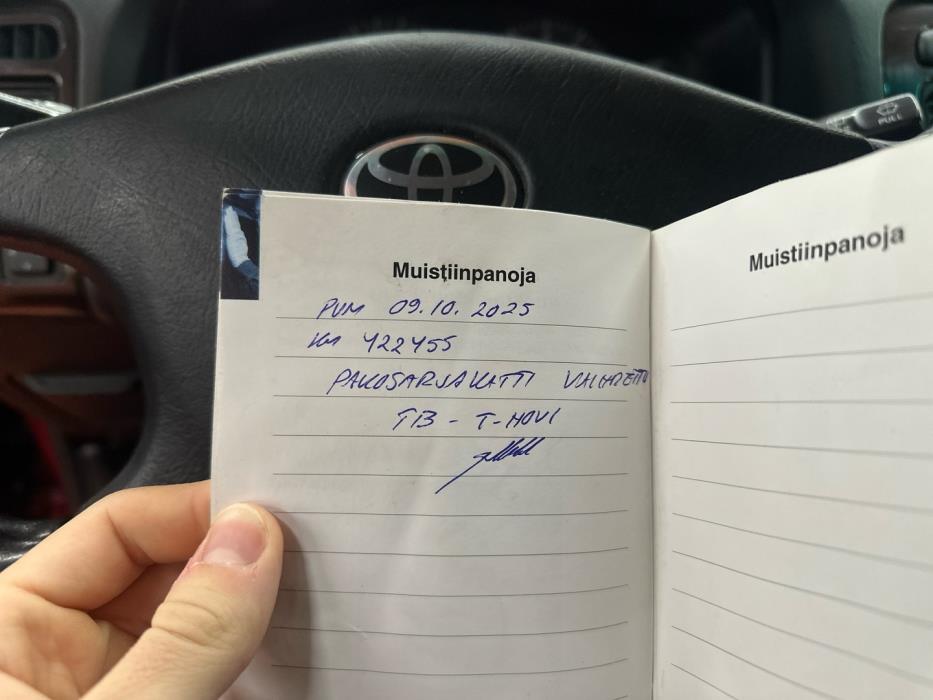 PULL
Muistiinpanoja
Muistiinpanoja
PVM 09.10.2025
Km 422455
PAKOSARJAKATTI VAIHDETTU
TB - T-HOVI